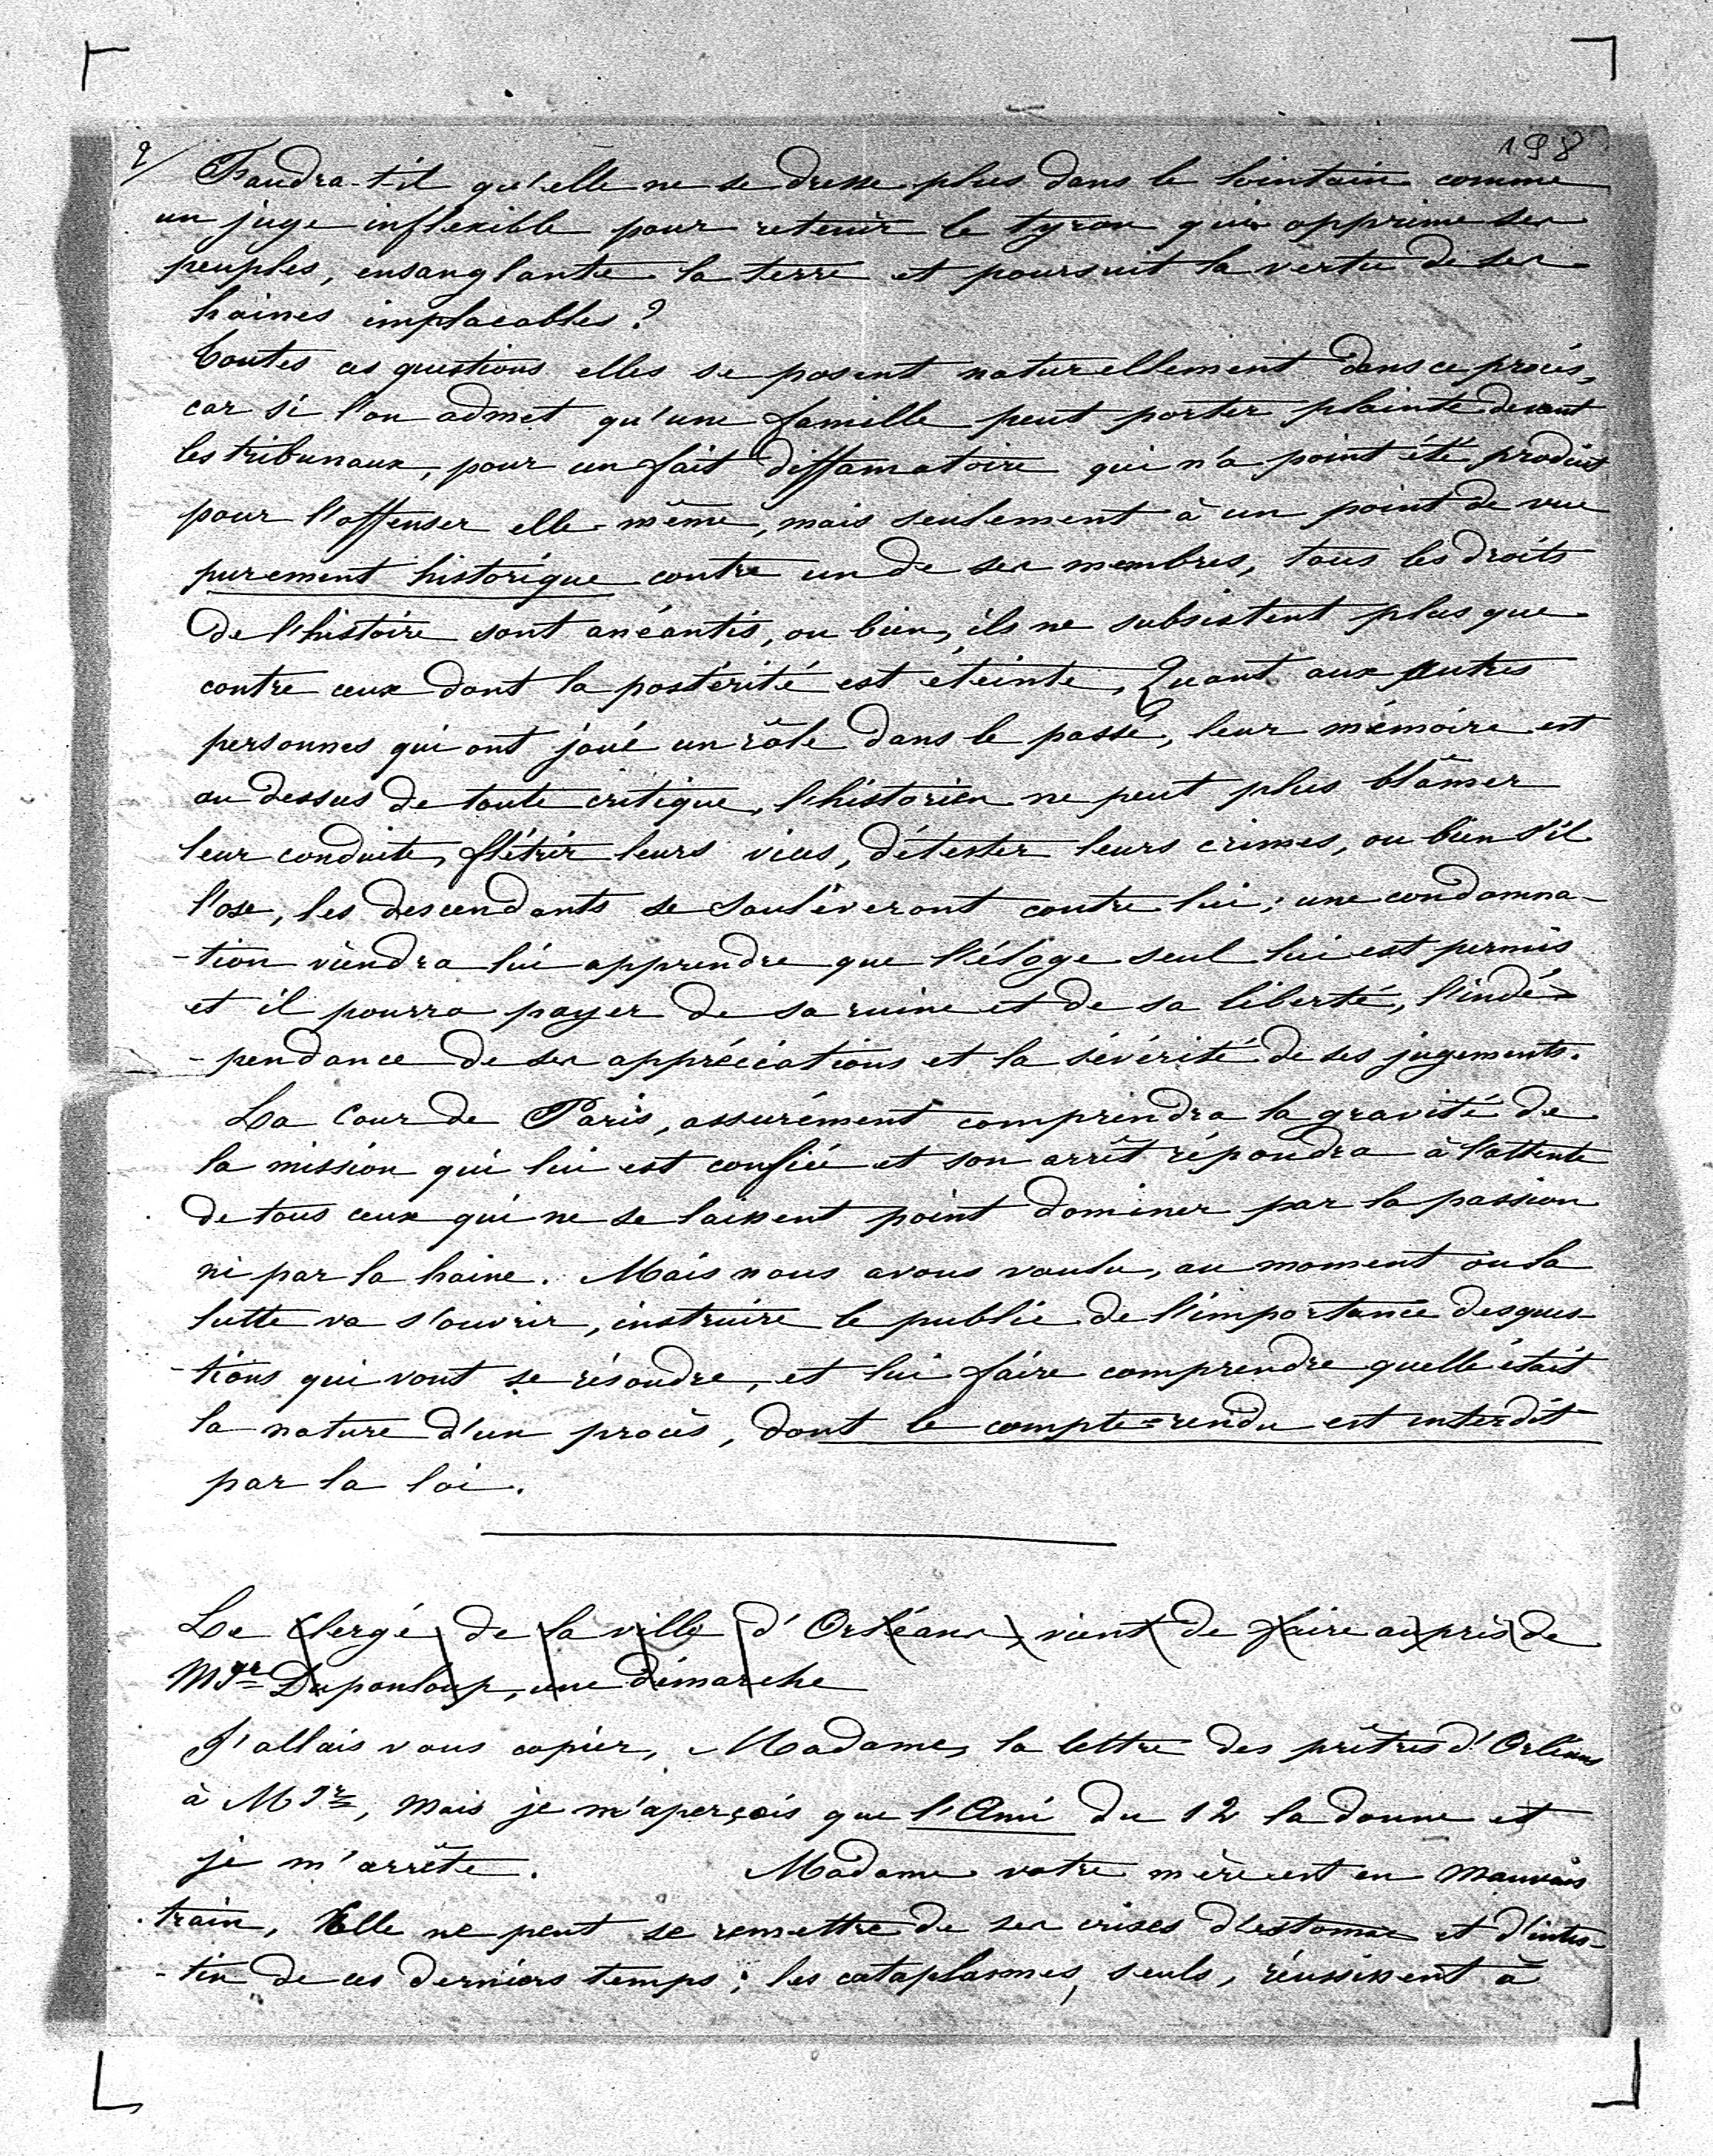 198
2/ Faudra-t-il qu'elle ne se dresse plus dans le lointain comme
un juge inflexible pour retenir le tyran qui opprime ses
peuples, ensanglante la terre et poursuit la vertu de ses
haines implacables ?
Toutes ces questions elles se posent naturellement dans ce procès,
car si l'on admet qu'une famille peut porter plainte devant
les tribunaux, pour un fait diffamatoire qui n'a point été produit
pour l'offenser elle-même, mais seulement à un point de vue
purement historique contre un de ses membres, tous les droits
de l'histoire sont anéantis, ou bien, ils ne subsistent plus que
contre ceux dont la postérité est éteinte, Quant aux autres
personnes qui ont joué un rôle dans le passé, leur mémoire est
au dessus de toute critique, l'historien ne peut plus blâmer
leur conduite, flétrir leurs vices, détester leurs crimes, ou bien s'il
l'ose, les descendants se soulèveront contre lui ; une condamna-
-tion viendra lui apprendre que l'éloge seul lui est permis
et il pourra payer de sa ruine et de sa liberté, l'indé-
-pendance de ses appréciations et la sévérité de ses jugements.
La Cour de Paris, assurément comprendra la gravité de
la mission qui lui est confiée et son arrêt répondra à l'attente
de tous ceux qui ne se laissent point dominer par la passion
ni par la haine. Mais nous avons voulu, au moment où la
lutte va s'ouvrir, instruire le public de l'importance des ques-
-tions qui vont se résoudre, et lui faire comprendre quelle était
la nature d'un procès, dont le compte=rendu est interdit
par la loi.
Le Clergé de la ville d'Orléans, vient de faire auprès de
Mgr Dupanloup, une démarche
J'allais vous copier, Madame, la lettre des prêtres d'Orléans
à Mgr, mais je m'aperçois que l'Ami du 12 la donne et
je m'arrête. Madame votre mère est en mauvais
train, Elle ne peut se remettre de ses crises d'estomac et d'intes-
-tin de ces derniers temps ; les cataplasmes, seuls, réussissent à